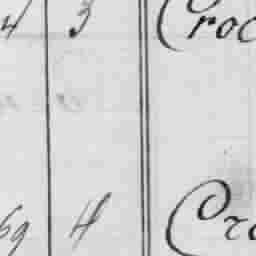 4 3 Croc
69 4 Cro